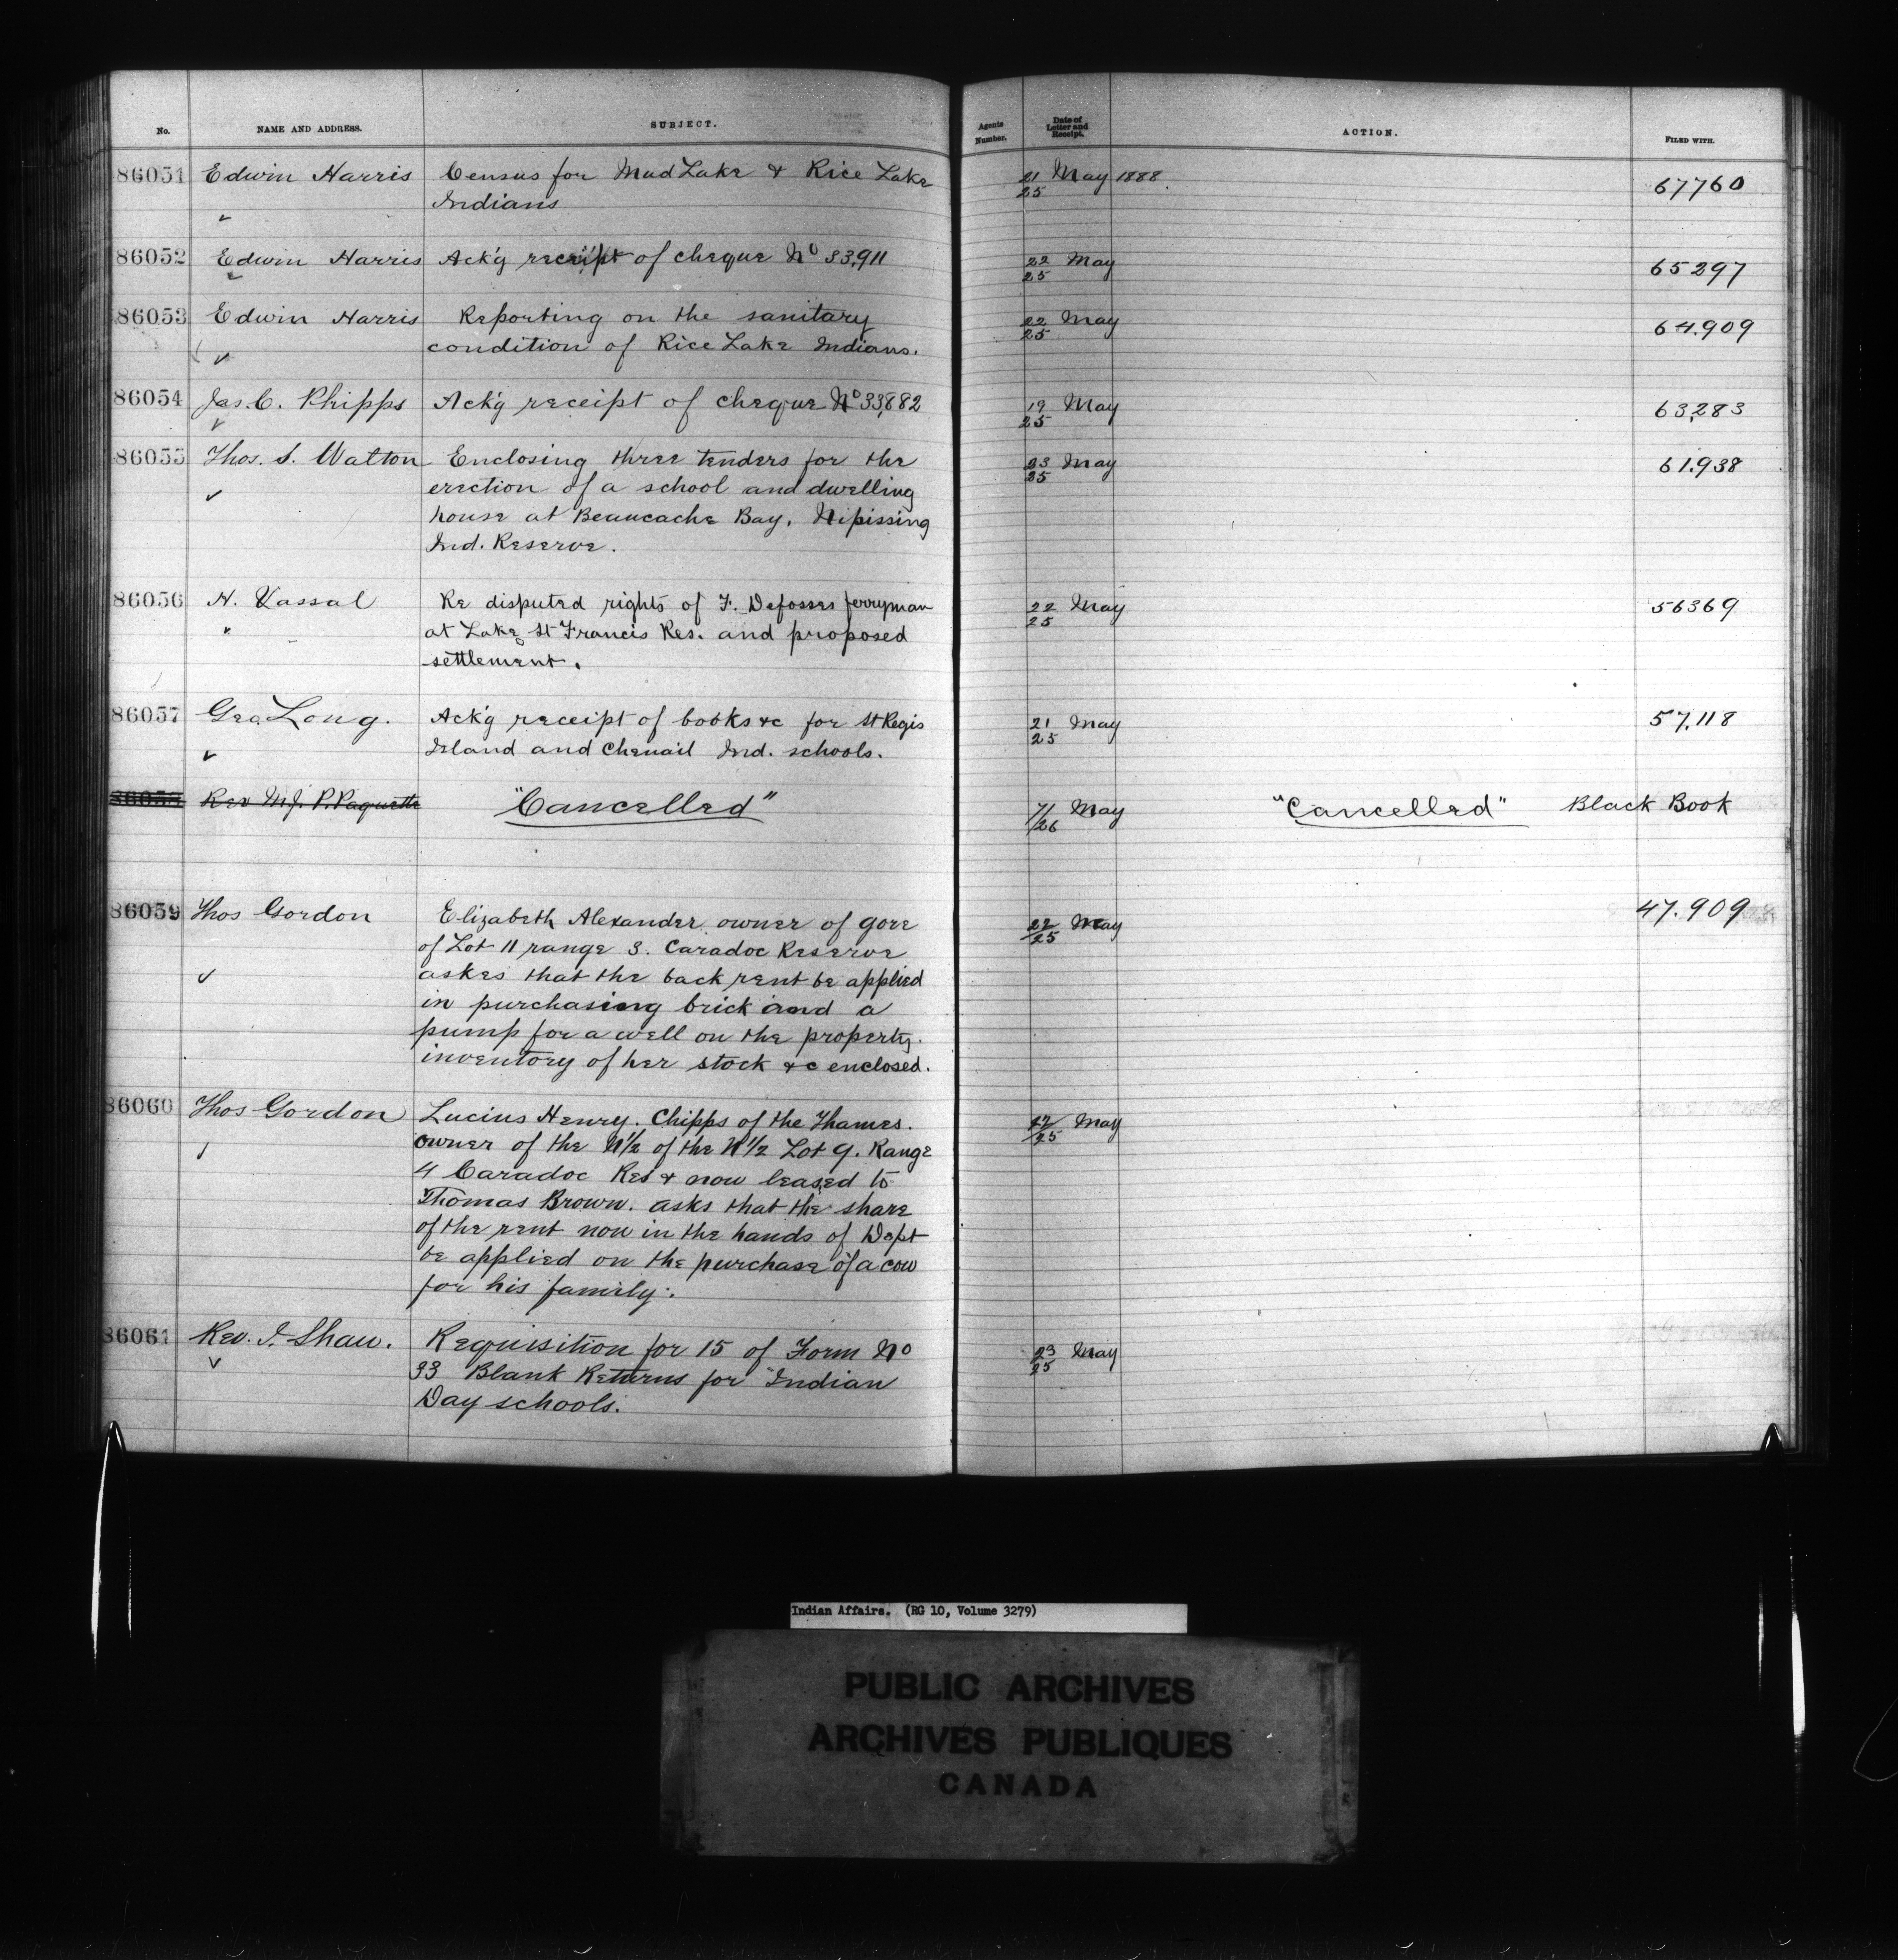 No. NAME AND ADDRESS. SUBJECT. Agents Number. Date of Letter and Receipt. ACTION. FILED WITH.
86051 Edwin Harris Census for Mud Lake & Rice Lake 21/25 May 1888 67760
Indians
86052 Edwin Harris Ack'g receipt of cheque No 33,911 22/25 May 65297
86053 Edwin Harris Reporting on the sanitary 22/25 May 64.909
condition of Rice Lake Indians.
86054 Jas. C. Phipps Ack'g receipt of cheque No 33,882 19/25 May 63,283
86055 Thos. S. Walton Enclosing three tenders for the 23/25 May 61.938
erection of a school and dwelling
house at Beaucache Bay, Nipissing
Ind. Reserve.
86056 H. Vassal Re disputed rights of F. Defosses ferryman 22/25 May 56369
at Lake St Francis Res. and proposed
settlement.
86057 Geo Long. Ack'g receipt of books &c for St Regis 21/25 May 57,118
Island and Chenail Ind. schools.
86058 Rev M.J. P. Paquette "Cancelled" 7/26 May "Cancelled" Black Book
86059 Thos Gordon Elizabeth Alexander owner of gore 22/25 May 47.909
of Lot 11 range 3. Caradoc Reserve
askes that the back rent be applied
in purchasing brick and a
pump for a well on the property.
inventory of her stock &c enclosed.
86060 Thos Gordon Lucius Henry. Chipps of the Thames. 22/25 May
owner of the N1/2 of the N1/2 Lot 9. Range
4 Caradoc Res & now leased to
Thomas Brown. asks that the share
of the rent now in the hands of Dept
be applied on the purchase of a cow
for his family.
86061 Rev. I. Shaw. Requisition for 15 of Form No 23/25 May
33 Blank Returns for Indian
Day schools.
Indian Affairs. (RG 10, Volume 3279)
PUBLIC ARCHIVES
ARCHIVES PUBLIQUES
CANADA